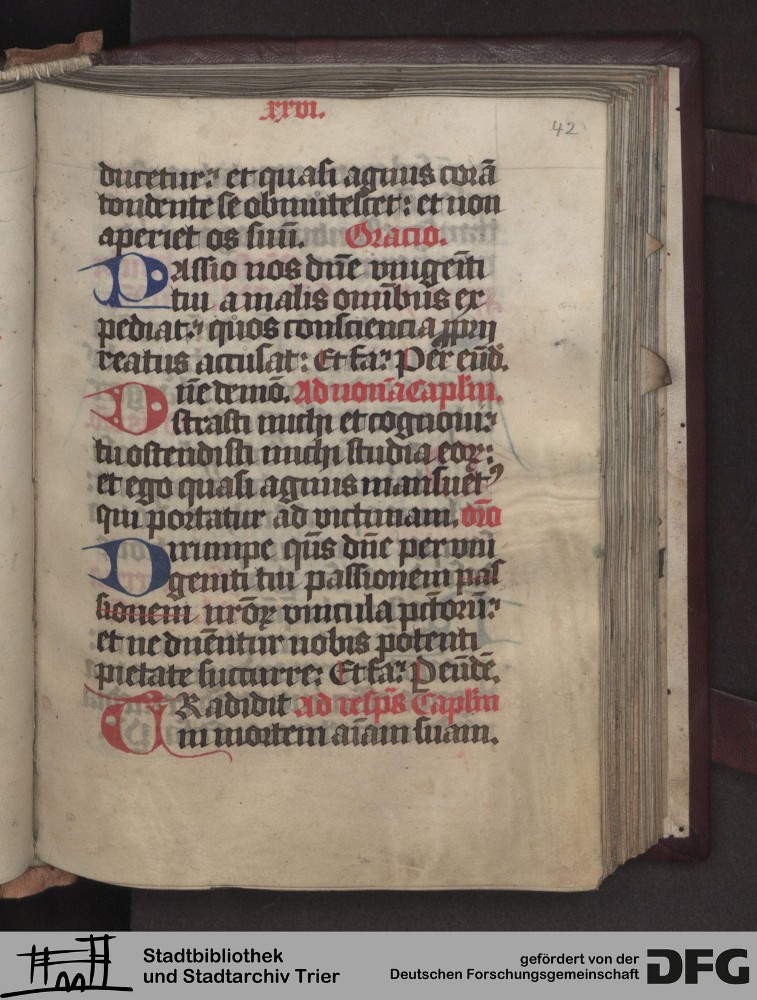 xxvi.
42
ducetur: et quasi agnus corā
tondente se obmutescet: et non
aperiet os suū. Oracio.
Passio nos dn̄e vnigen̄ti
tui a malis omn̄ibus ex
pediat: quos consciencia
reatus accusat: Et fa: Per eūd.
Dn̄e demō. Ad nonā Caplm̄.
strasti michi et cognoui:
tu ostendisti michi studia eoꝝ:
et ego quasi agnus mansuetꝰ
qui portatur ad victimam. or̄o
Dirumpe qs̄ dn̄e per vni
geniti tui passionem pas
sionem nr̄oꝝ vincula pctorū:
et ne dn̄entur nobis potenti
pietate succurre: Et fa: P eūdē.
TRadidit Ad vesp̄s Caplm̄
in mortem aīam suam.
Stadtbibliothek
und Stadtarchiv Trier
gefördert von der
Deutschen Forschungsgemeinschaft
DFG